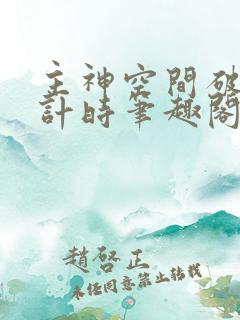 主神空間破
計時筆趣閣
趙啓正
未经同意禁止转载